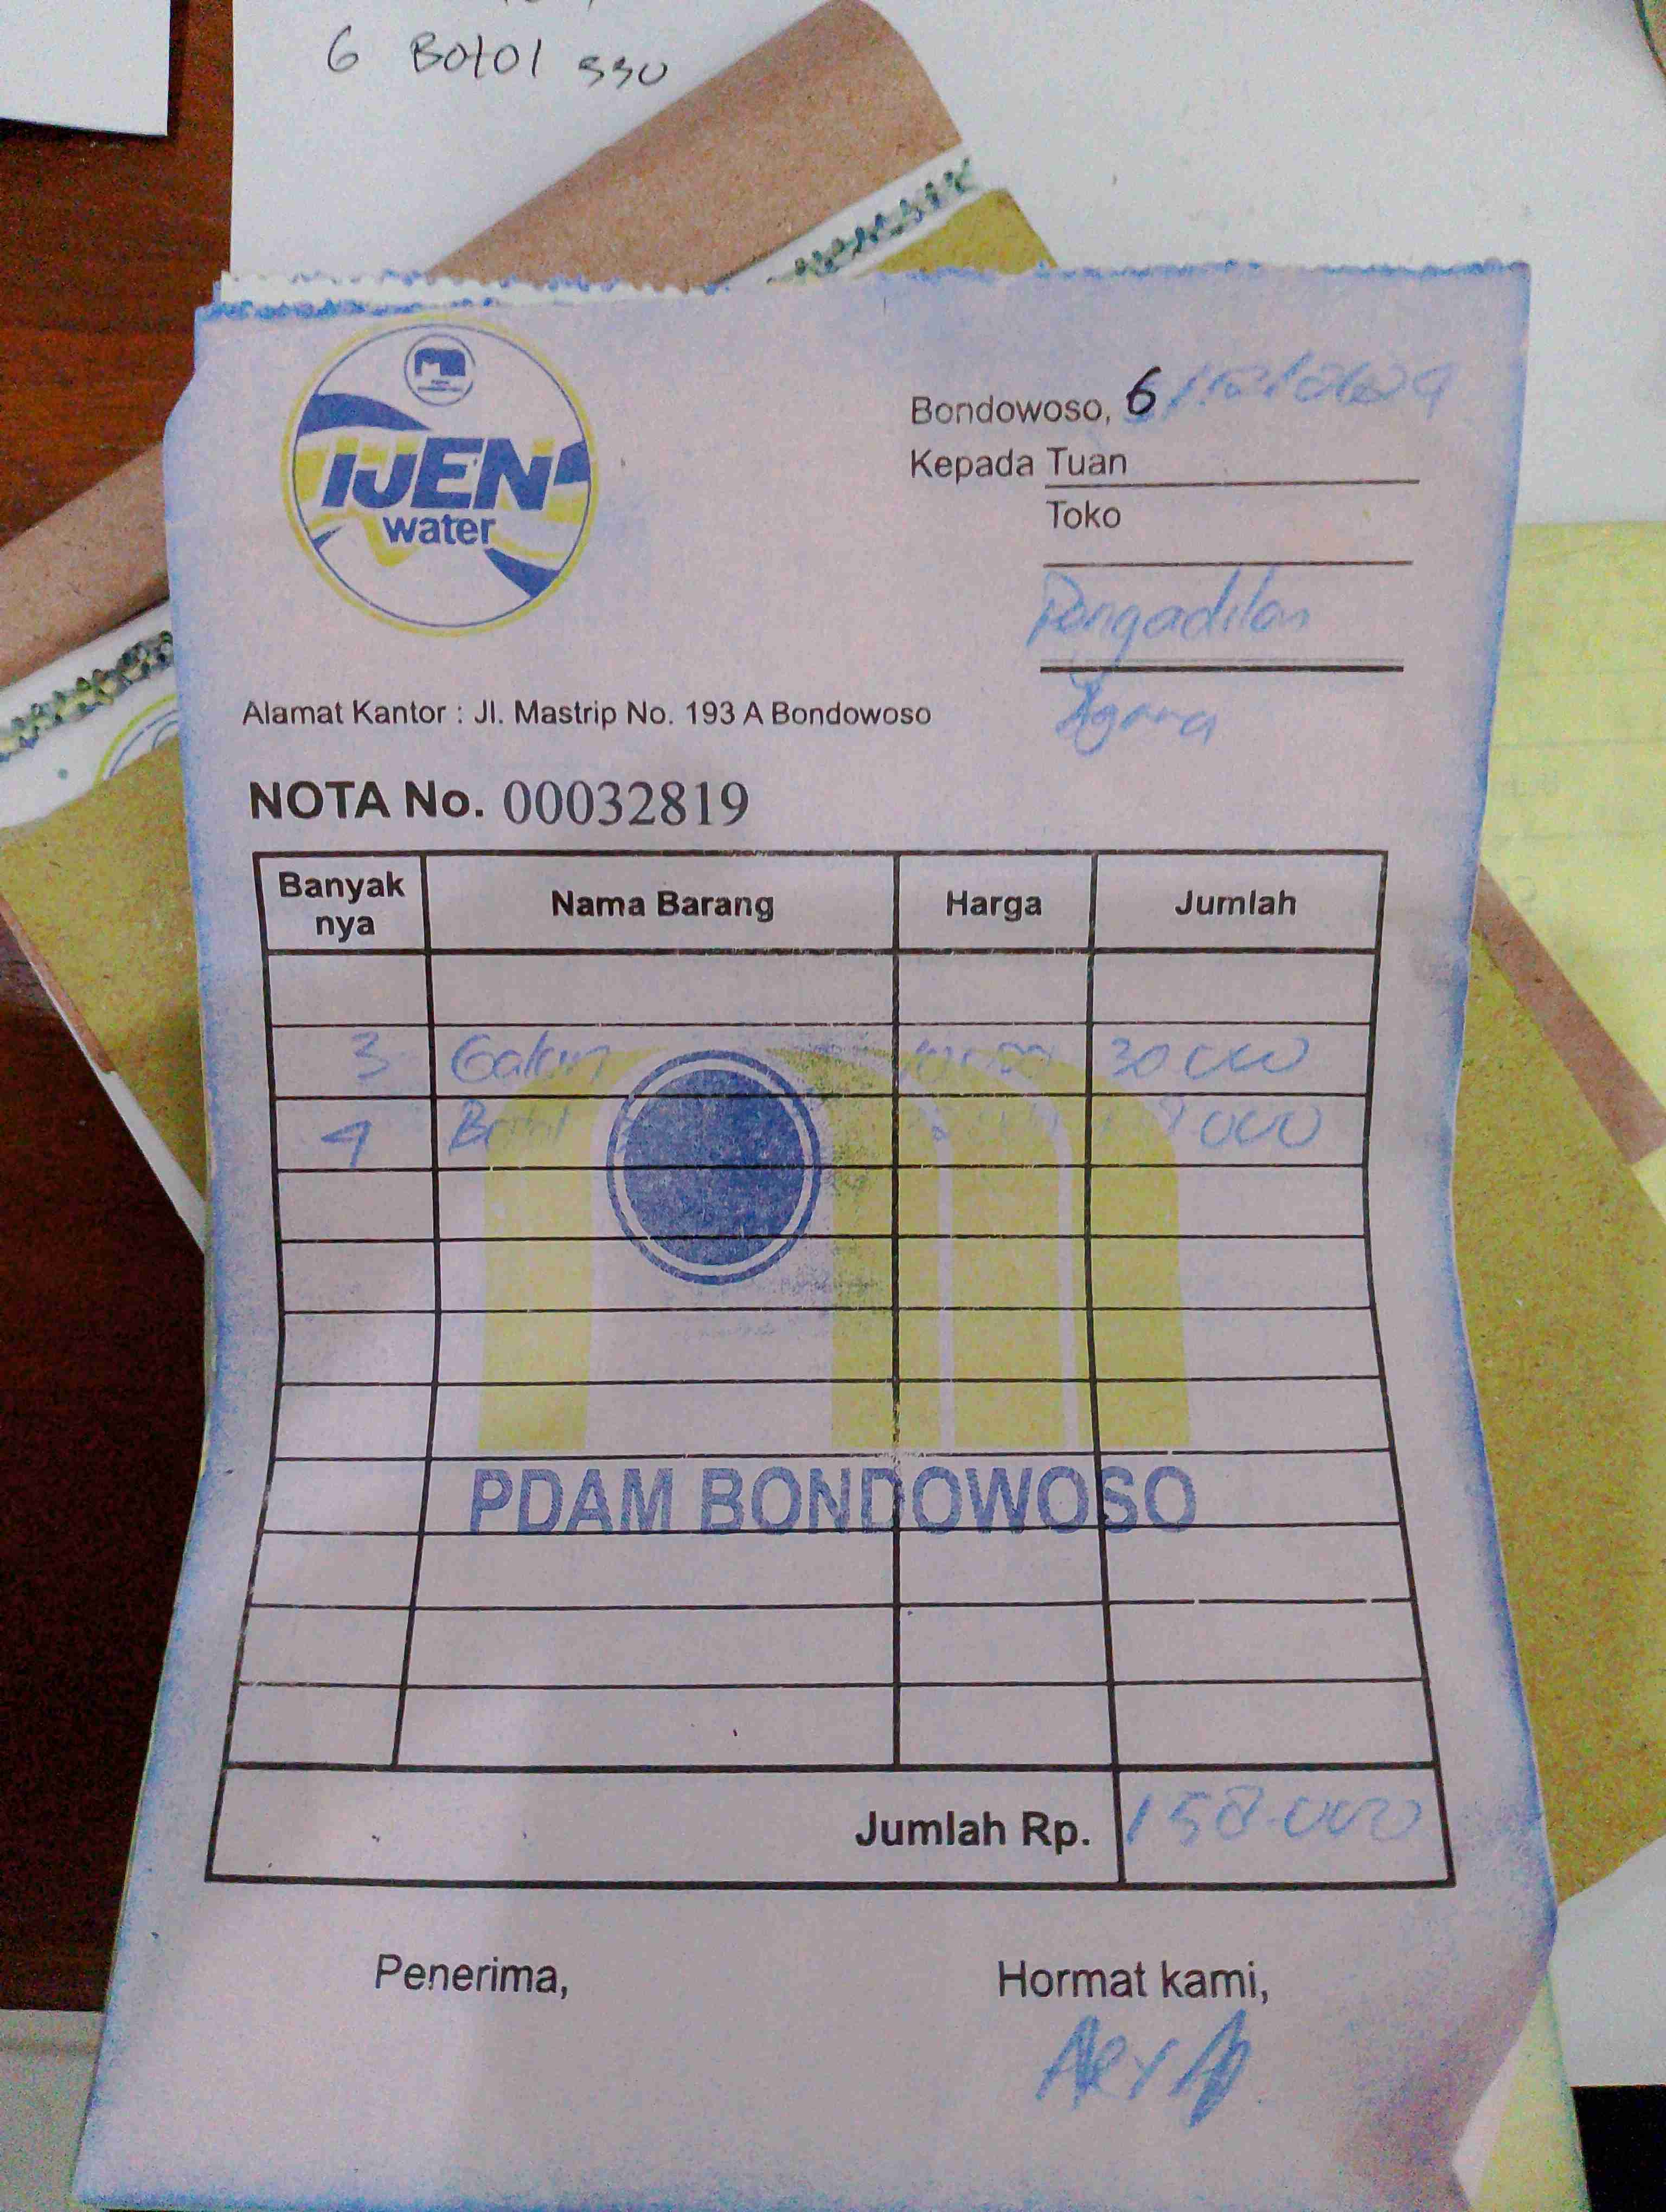 6 Botol 330
IJEN
water
Bondowoso, 6
Kepada Tuan
Toko
Pengadilan
Agama
Alamat Kantor : Jl. Mastrip No. 193 A Bondowoso
NOTA No. 00032819
Banyak nya Nama Barang Harga Jumlah
3 Galon 30 000
4 Botol 000
PDAM BONDOWOSO
Jumlah Rp. 158.000
Penerima, Hormat kami,